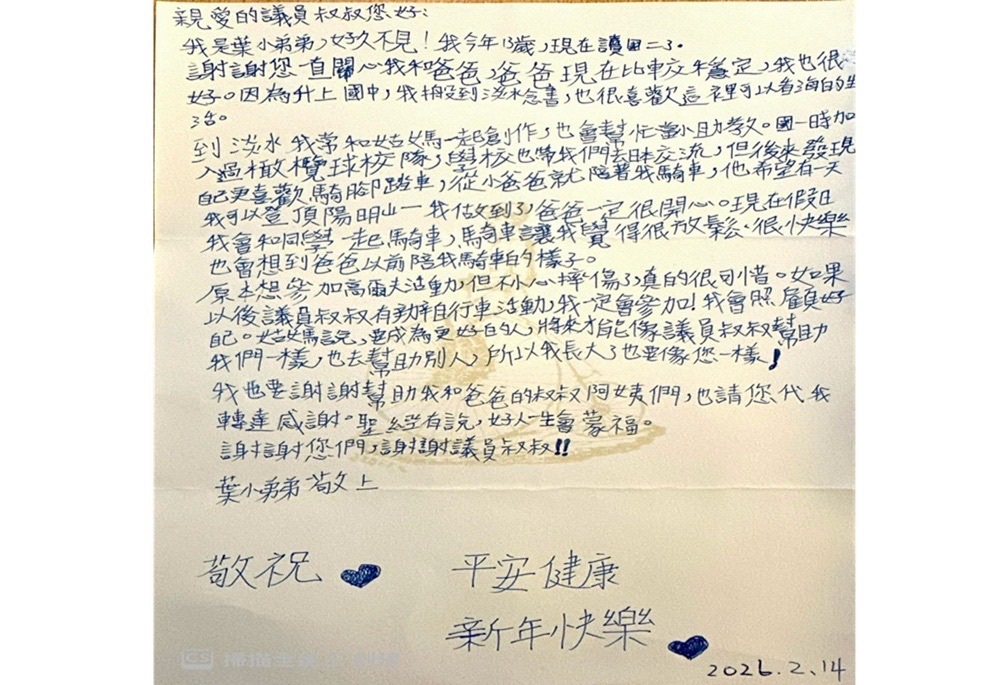 親愛的議員叔叔您好:
我是葉小弟弟,好久不見!我今年13歲,現在讀國二了.
謝謝您一直關心我和爸爸,爸爸現在比較穩定,我也很
好。因為升上國中,我搬到淡水念書,也很喜歡這裡可以看海的生
活。
到淡水我常和姑媽一起創作,也會幫忙當小助教。國一時加
入過橄欖球校隊,學校也帶我們去日本交流,但後來發現
自己更喜歡騎腳踏車,從小爸爸就陪著我騎車,他希望有一天
我可以登頂陽明山—我做到了,爸爸一定很開心。現在假日
我會和同學一起騎車,騎車讓我覺得很放鬆、很快樂
也會想到爸爸以前陪我騎車的樣子。
原本想參加高爾夫活動,但不小心摔傷了,真的很可惜。如果
以後議員叔叔有辦自行車活動,我一定會參加!我會照顧好
自己。姑媽說,要成為更好的人,將來才能像議員叔叔幫助
我們一樣,也去幫助別人,所以我長大了也要像您一樣!
我也要謝謝幫助我和爸爸的叔叔阿姨們,也請您代我
轉達感謝。聖經有說,好人一生會蒙福。
謝謝您們,謝謝議員叔叔!!
葉小弟弟 敬上
敬祝 平安健康
新年快樂
2026.2.14